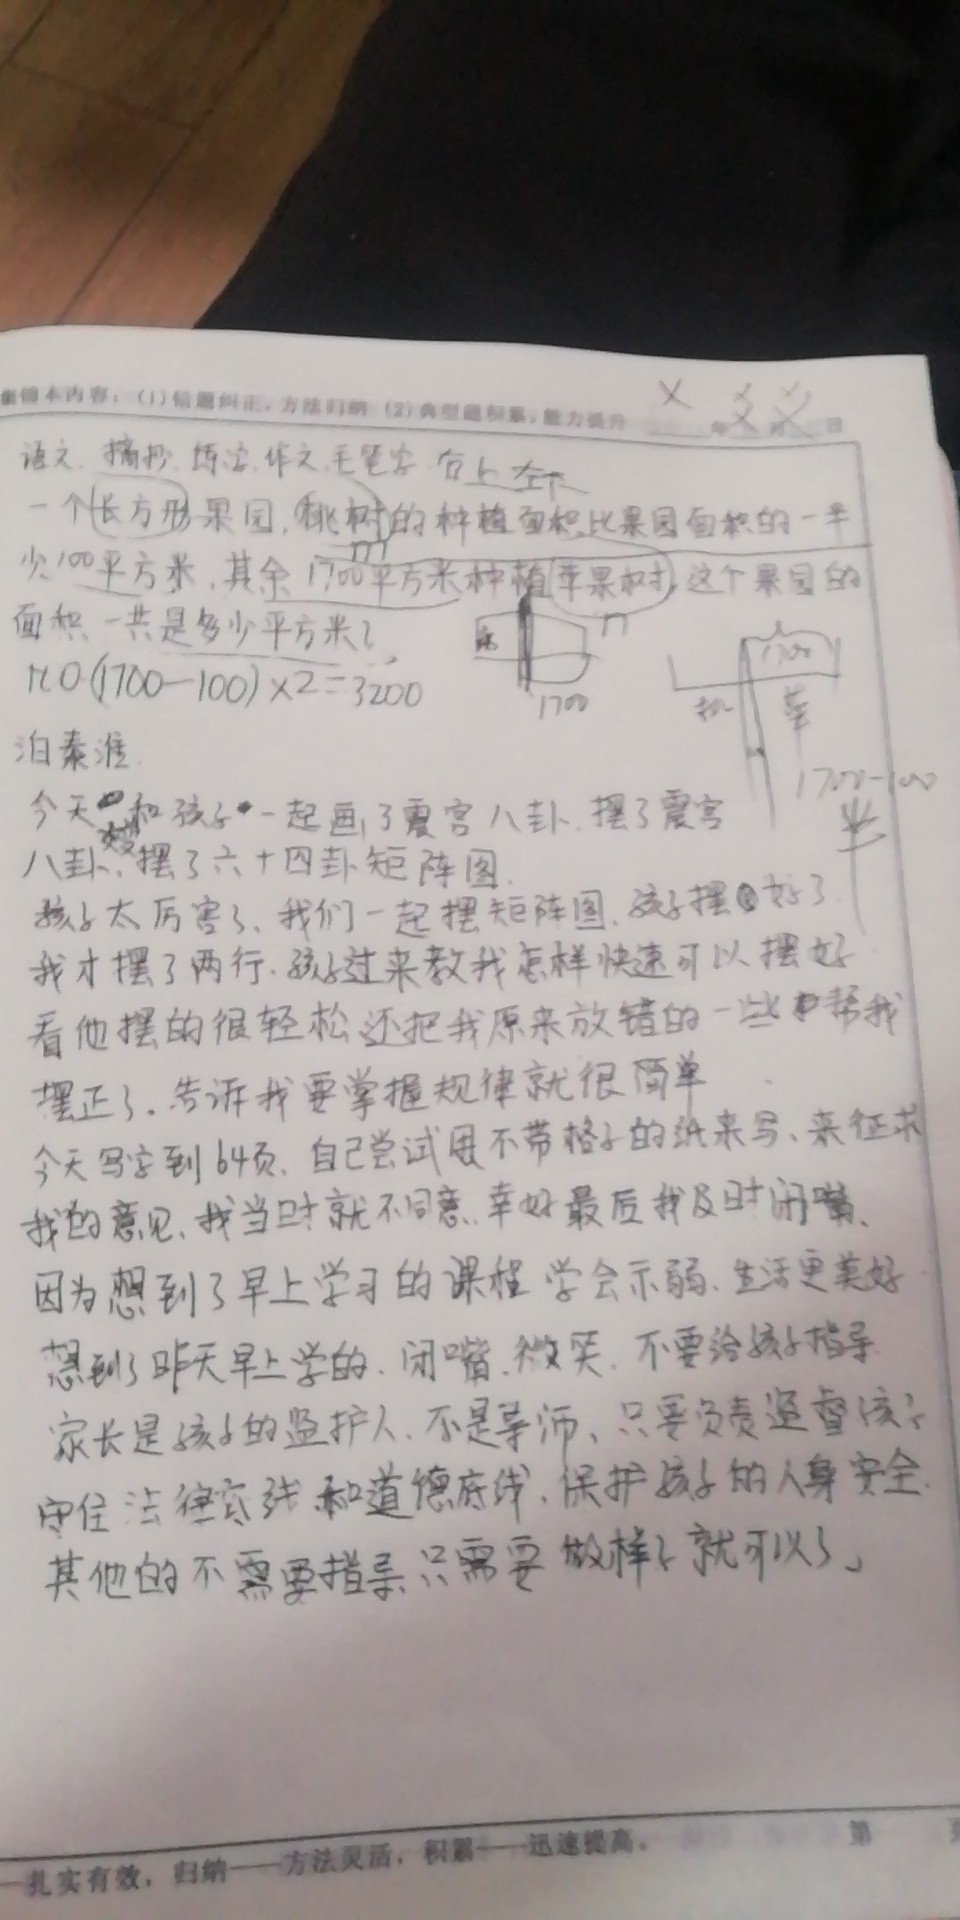 本内容：(1)错题纠正，方法归纳 (2)典型题积累，能力提升 年 月 日
语文 摘抄 练字 作文 毛笔字 右上
一个长方形果园，桃树的种植面积比果园面积的一半
少100平方米，其余1700平方米种植苹果树，这个果园的
面积一共是多少平方米？
(1700-100)×2=3200
桃
1700
1700
桃 苹
1700-100
泊秦淮
今天 和孩子一起画了震宫八卦，摆了震宫
八卦，摆了六十四卦矩阵图
孩子太厉害了，我们一起摆矩阵图，孩子摆好了
我才摆了两行，孩子过来教我怎样快速可以摆好
看他摆的很轻松还把我原来放错的一些帮我
摆正了，告诉我要掌握规律就很简单
今天写字到64页，自己尝试用不带格子的纸来写、来征求
我的意见，我当时就不同意，幸好最后我及时闭嘴、
因为想到了早上学习的课程 学会示弱、生活更美好
想到了昨天早上学的，闭嘴，微笑，不要给孩子指导
家长是孩子的监护人，不是导师，只要负责监督孩子
守住法律底线和道德底线，保护孩子的人身安全.
其他的不需要指导，只需要做样子就可以了」
扎实有效，归纳——方法灵活，积累——迅速提高。 第 页